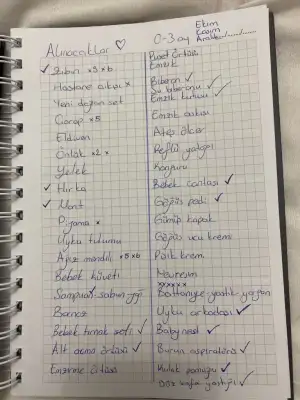 Alınacaklar ♡
✓ Zıbın x5 x6
Hastane çıkışı x
Yeni doğan set
Çorap x5
Eldiven
Önlük x2 x
Yelek
✓ Hırka
✓ Mont
Pijama x
Uyku tulumu
Ağız mendili x5 x6
Bebek küveti
Şampuan ✓ sabun yağ
Bornoz
Bebek tırnak seti ✓
Alt açma örtüsü ✓
Emzirme örtüsü
0-3 ay
Ekim
Kasım
Aralık
Puset örtüsü
Emzik
Biberon ✓
Emzik kutusu ✓
Emzik askısı
Ateş ölçer
Reflü yatağı
Kanguru
Bebek çantası ✓
Göğüs pedi ✓
Gümüş kapak
Göğüs ucu kremi
Pişik kremi
Mevresim
xxxxxx
Battaniye yastık yorgan
Uyku arkadaşı ✓
Babynest ✓
Burun aspiratörü ✓
Kulak pamuğu ✓
Düz kafa yastığı ✓